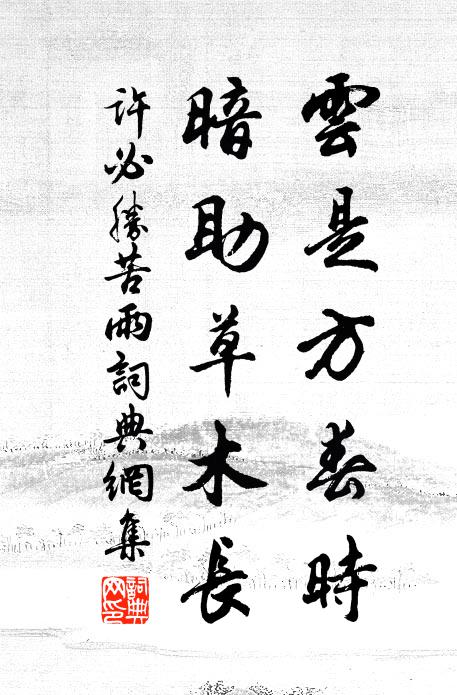 雲是方春時
暗助草木長
許必勝苦雨詞典網集
詞典网印